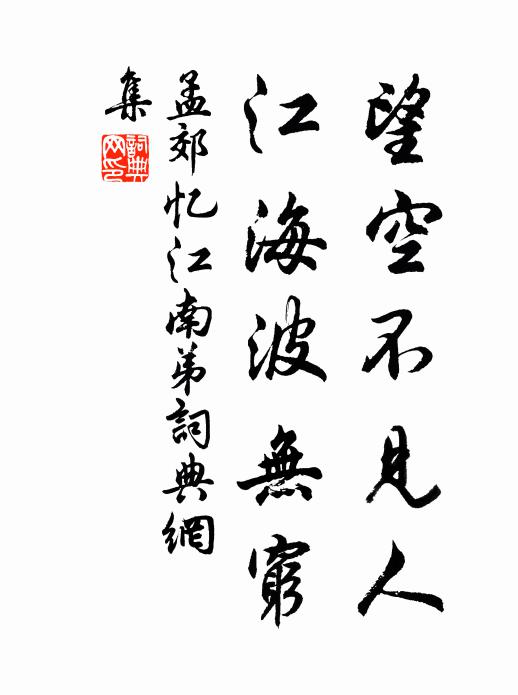 望空不見人
江海波無窮
孟郊忆江南弟詞典網
集
詞典
网印